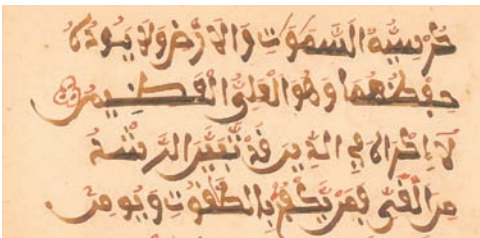 كُرْسِيُّهُ السَّمَٰوَٰتِ وَالَارْضَ وَلَا يَـُٔودُهُۥ
حِفْظُهُمَا وَهُوَ الْعَلِيُّ الْعَظِيمُ
لَآ إِكْرَاهَ فِي الدِّينِ قَد تَّبَيَّنَ الرُّشْدُ
مِنَ الْغَيِّ فَمَنْ يَّكْفُرْ بِالطَّٰغُوتِ وَيُومِنْ